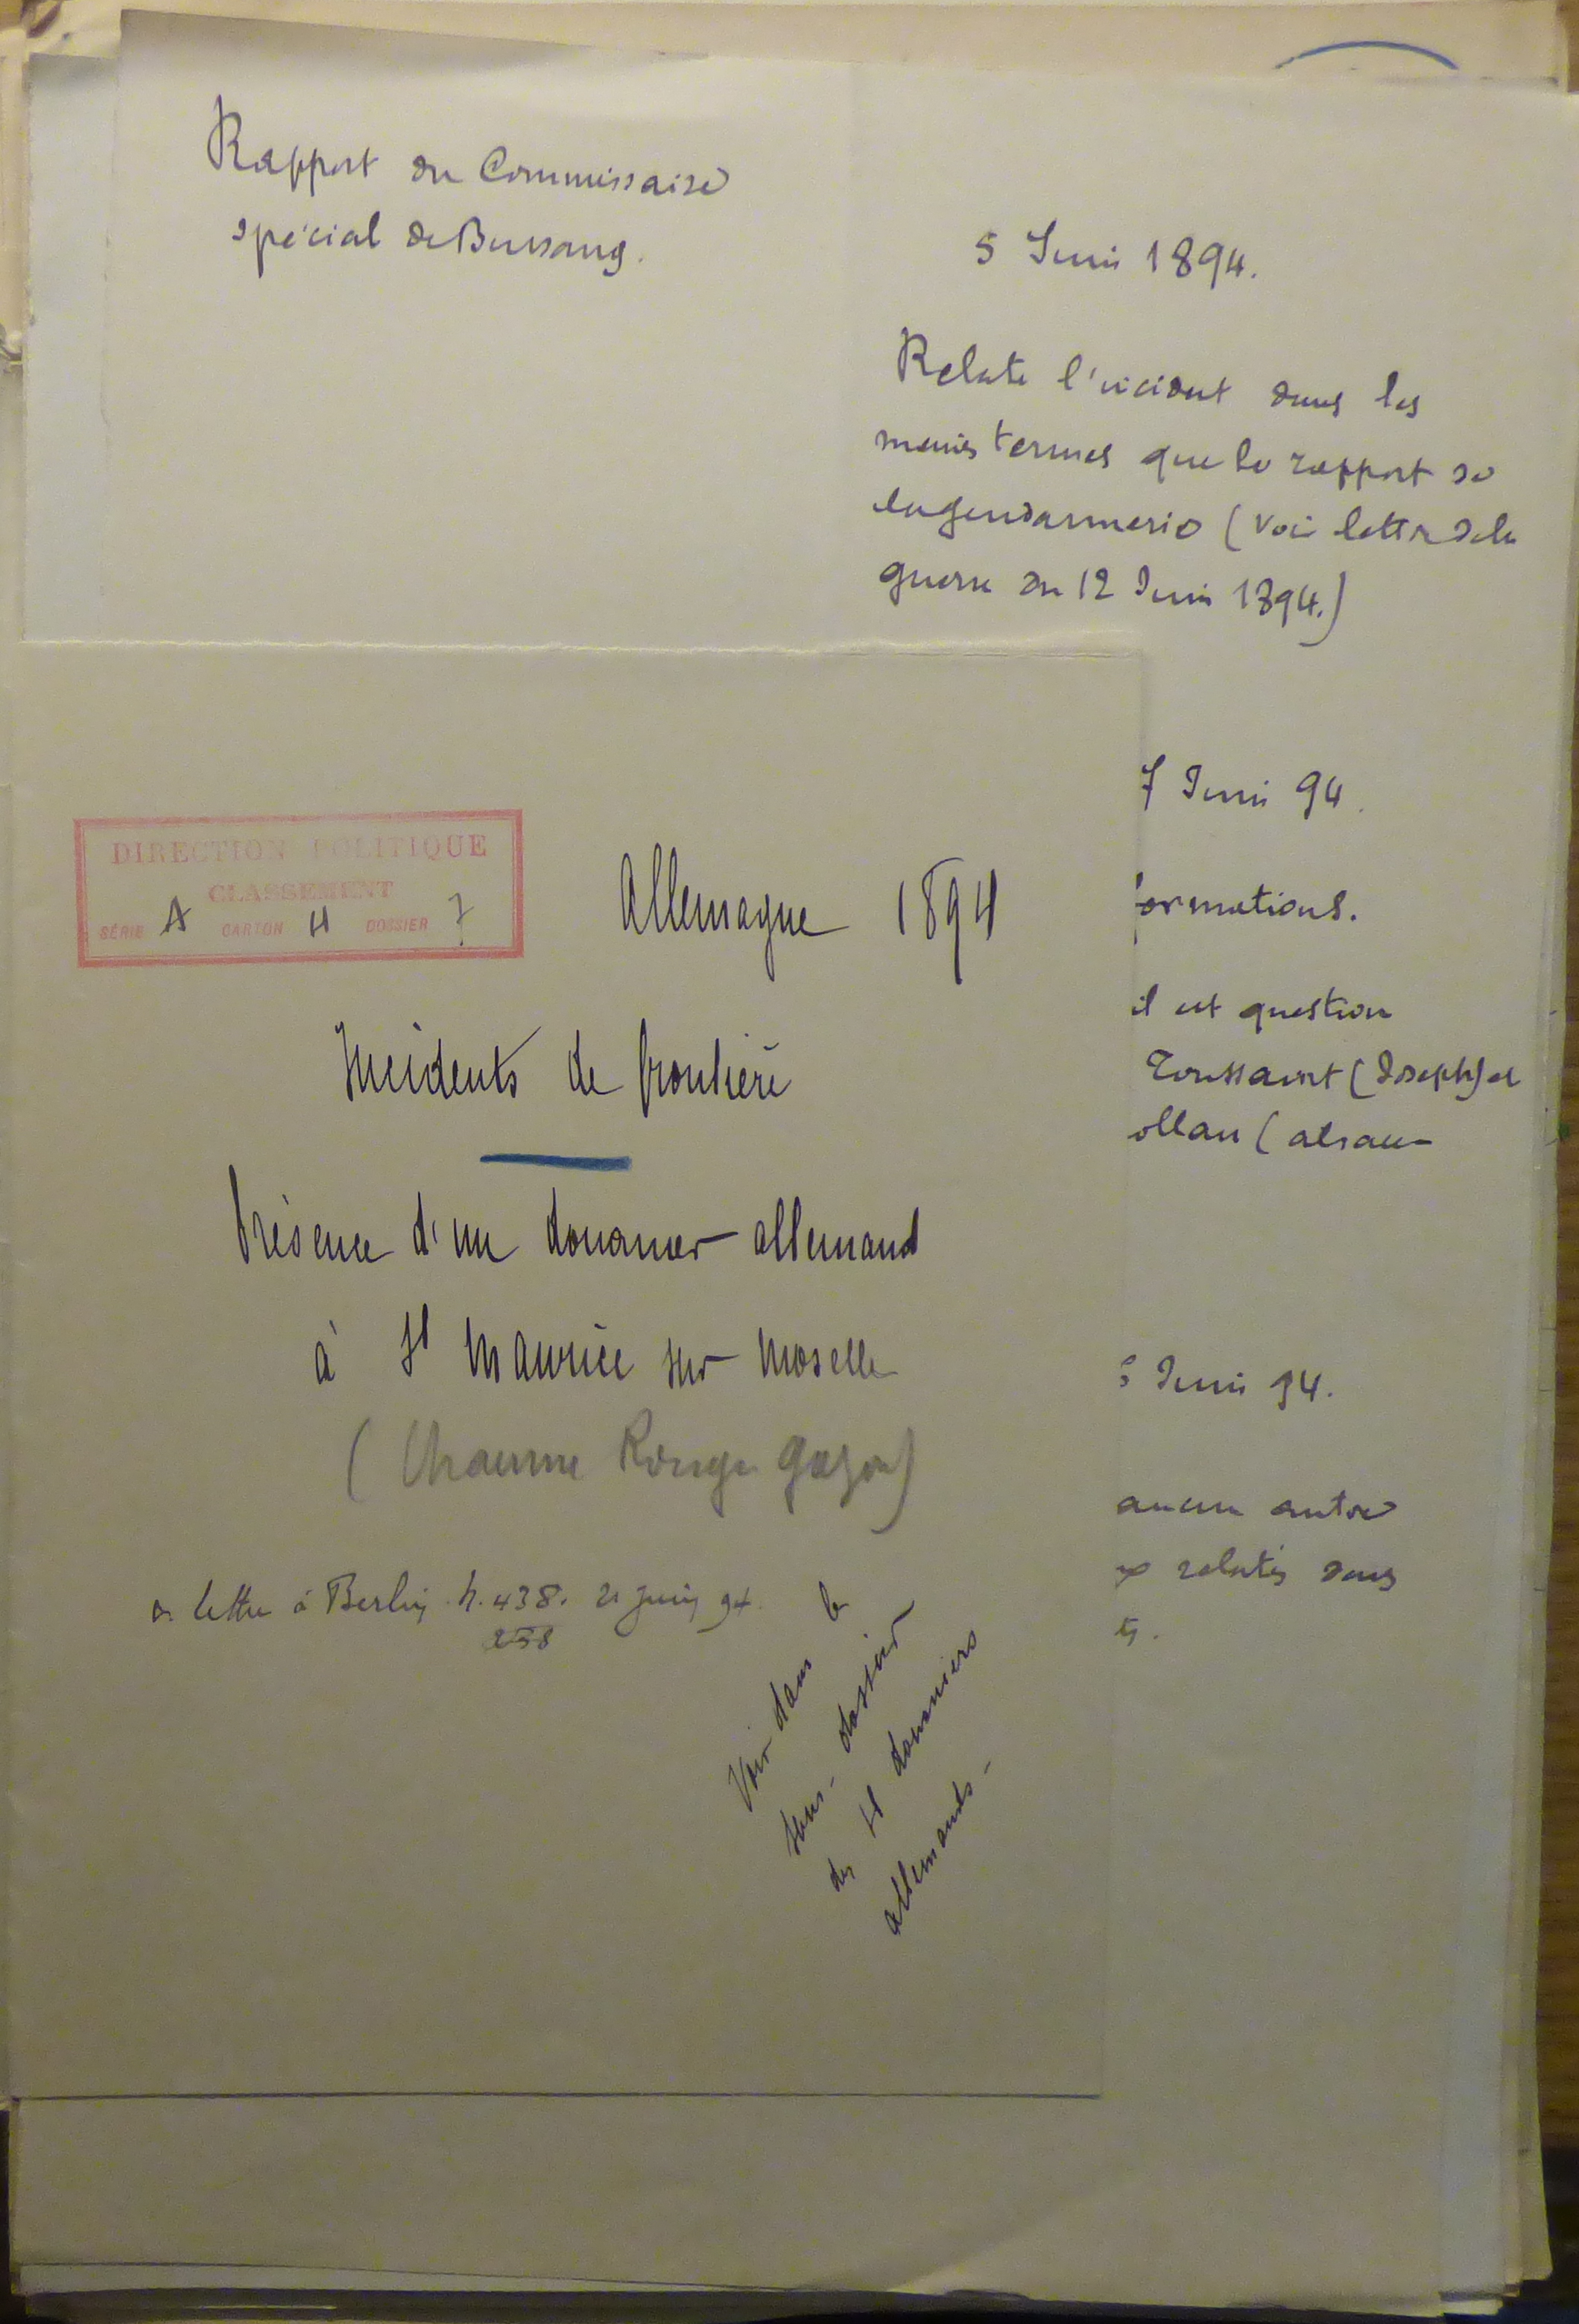 Rapport du Commissaire
spécial de Bussang.
5 Juin 1894.
Relate l'incident dans les
mêmes termes que le rapport de
la gendarmerie (voir lettre de la
guerre du 12 Juin 1894.)
7 Juin 94.
formations.
il est question
Toussaint (Joseph) et
ollau (alsac-
DIRECTION POLITIQUE
CLASSEMENT
SÉRIE A CARTON 4 DOSSIER 7
Allemagne 1894
Incidents de frontière
Présence d'un douanier allemand
à St Maurice sur Moselle
(Chaume Rouge Gazon)
Juin 94.
aucun autre
relatés dans
lettre à Berlin n. 438. 21 juin 94.
258
Voir dans le
sous-dossier
des 4 douaniers
allemands-